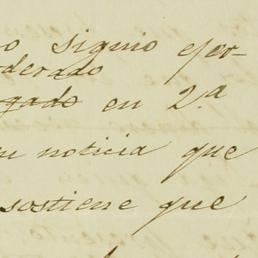 o siguio ejer-
derado
gado en 2.a
su noticia que
sostiene que